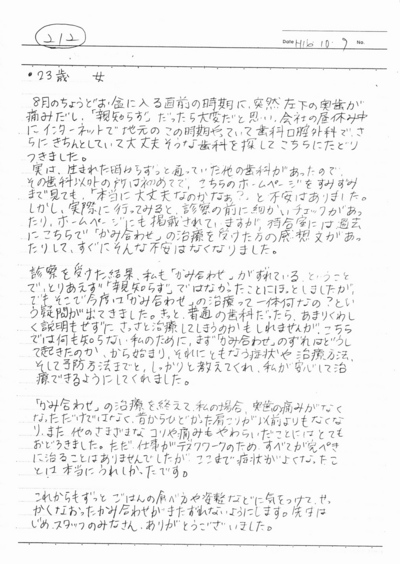 212
Date H16・10・9 No.
・23歳 女
8月のちょうどお盆に入る直前の時期に、突然左下の奥歯が
痛みだし、「親知らず」だったら大変だと思い、会社の昼休み中
にインターネットで地元のこの時期やっていて歯科口腔外科で、さ
らにきちんとしていて大丈夫そうな歯科を探してこちらにたどり
つきました。
実は、生まれた頃からずっと通っていた他の歯科があったので、
その歯科以外の所は初めてで、こちらのホームページをすみずみ
まで見ても、「本当に大丈夫なのかなぁ?」と不安はありました。
しかし、実際に行ってみると、診察の前に細かいチェックがあっ
たり、ホームページにも掲載されていますが、待合室には過去
にこちらで「かみ合わせ」の治療を受けた方の感想文があっ
たりして、すぐにそんな不安はなくなりました。
診察を受けた結果、私も「かみ合わせ」がずれている、ということ
で、とりあえず「親知らず」ではなかったことにほっとしましたが、
でもそこで今度は「かみ合わせ」の治療って一体何なの?とい
う疑問が出てきました。きっと、普通の歯科だったら、あまりくわし
く説明もせずに、さっさと治療してしまうのかもしれませんが、こちら
では何も知らない私のために、まず「かみ合わせ」のずれはどうし
て起きたのか、から始まり、それにともなう症状や治療方法、
そして予防方法までと、しっかりと教えてくれ、私が安心して治
療できるようにしてくれました。
「かみ合わせ」の治療を終えて、私の場合、奥歯の痛みがなく
なっただけではなく、昔からひどかった肩こりが以前よりもなくな
り、また他のさまざまなコリや痛みもやわらいだことにはとても
おどろきました。ただ、仕事がデスクワークのため、すべてが完ぺき
に治ることはありませんでしたが、ここまで症状がよくなったこ
とは本当にうれしかったです。
これからもずっとごはんの食べ方や姿勢などに気をつけて、せっ
かくなおったかみ合わせがまたずれないようにします。先生は
じめ、スタッフのみなさん、ありがとうございました。